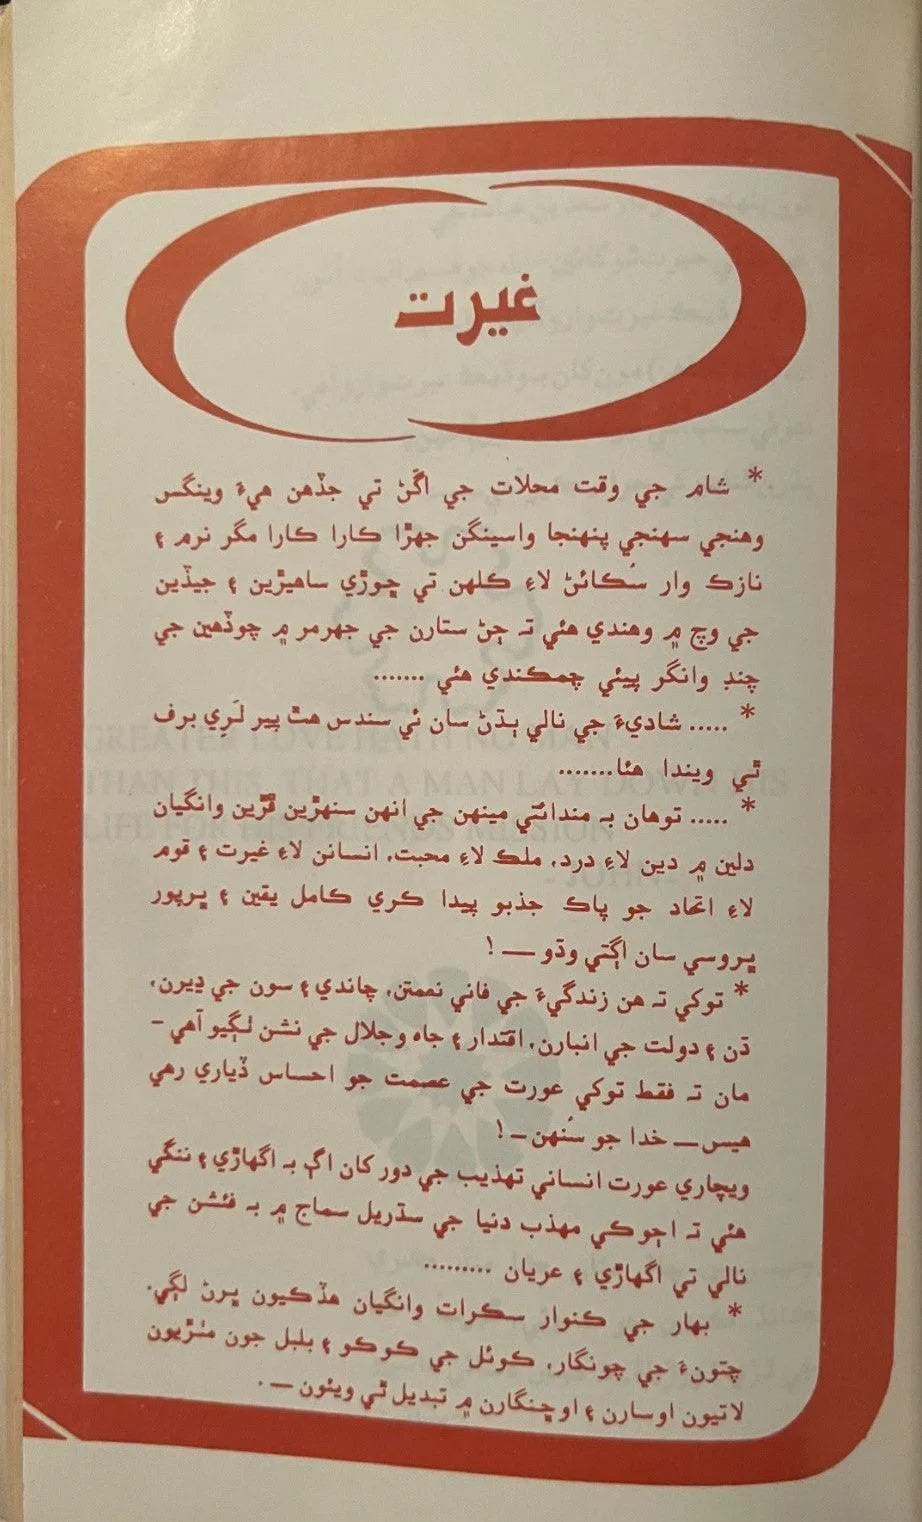 غيرت
* شام جي وقت محلات جي اڱڻ تي جڏهن هيءَ وينگس
وهنجي سهنجي پنهنجا واسينگن جهڙا ڪارا ڪارا مگر نرم ۽
نازڪ وار سُڪائڻ لاءِ ڪلهن تي ڇوڙي ساهيڙين ۽ جيڏين
جي وچ ۾ وهندي هئي تہ ڄڻ ستارن جي جهرمر ۾ چوڏهين جي
چنڊ وانگر پيئي چمڪندي هئي .......
* ..... شاديءَ جي نالي ٻڌڻ سان ئي سندس هٿ پير ٺَري برف
ٿي ويندا هئا.......
* ..... توهان بہ مندائتي مينهن جي انهن سنهڙين ڦڙين وانگيان
دلين ۾ دين لاءِ درد، ملڪ لاءِ محبت، انسانن لاءِ غيرت ۽ قوم
لاءِ اتحاد جو پاڪ جذبو پيدا ڪري ڪامل يقين ۽ ڀرپور
ڀروسي سان اڳتي وڌو — !
* توکي تہ هن زندگيءَ جي فاني نعمتن، چاندي ۽ سون جي ڍيرن،
ڌن ۽ دولت جي انبارن، اقتدار ۽ جاہ و جلال جي نشن لڳيو آهي -
مان تہ فقط توکي عورت جي عصمت جو احساس ڏياري رهي
هيس — خدا جو سُنهن - !
ويچاري عورت انساني تهذيب جي دور کان اڳ بہ اگهاڙي ۽ ننگي
هئي تہ اڄوڪي مهذب دنيا جي سڌريل سماج ۾ بہ فئشن جي
نالي تي اگهاڙي ۽ عريان .........
* بهار جي ڪنوار سڪرات وانگيان هڏڪيون ڀرڻ لڳي.
چتونءَ جي چونگار، ڪوئل جي ڪوڪو ۽ بلبل جون مٺڙيون
لاتيون اوسارن ۽ اوڇنگارن ۾ تبديل ٿي ويئون — .